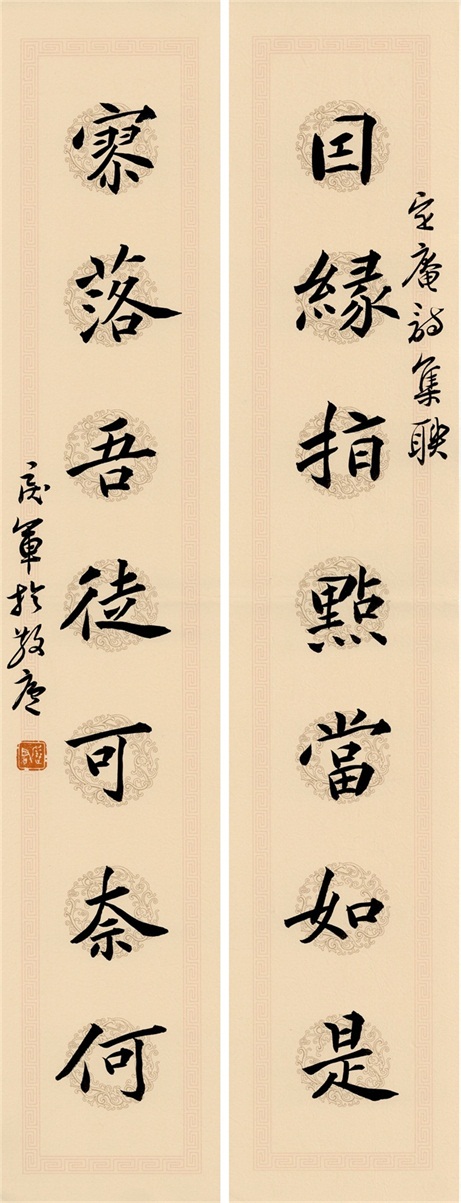 定庵詩集聯
因緣指點當如是
寥落吾徒可奈何
軍於